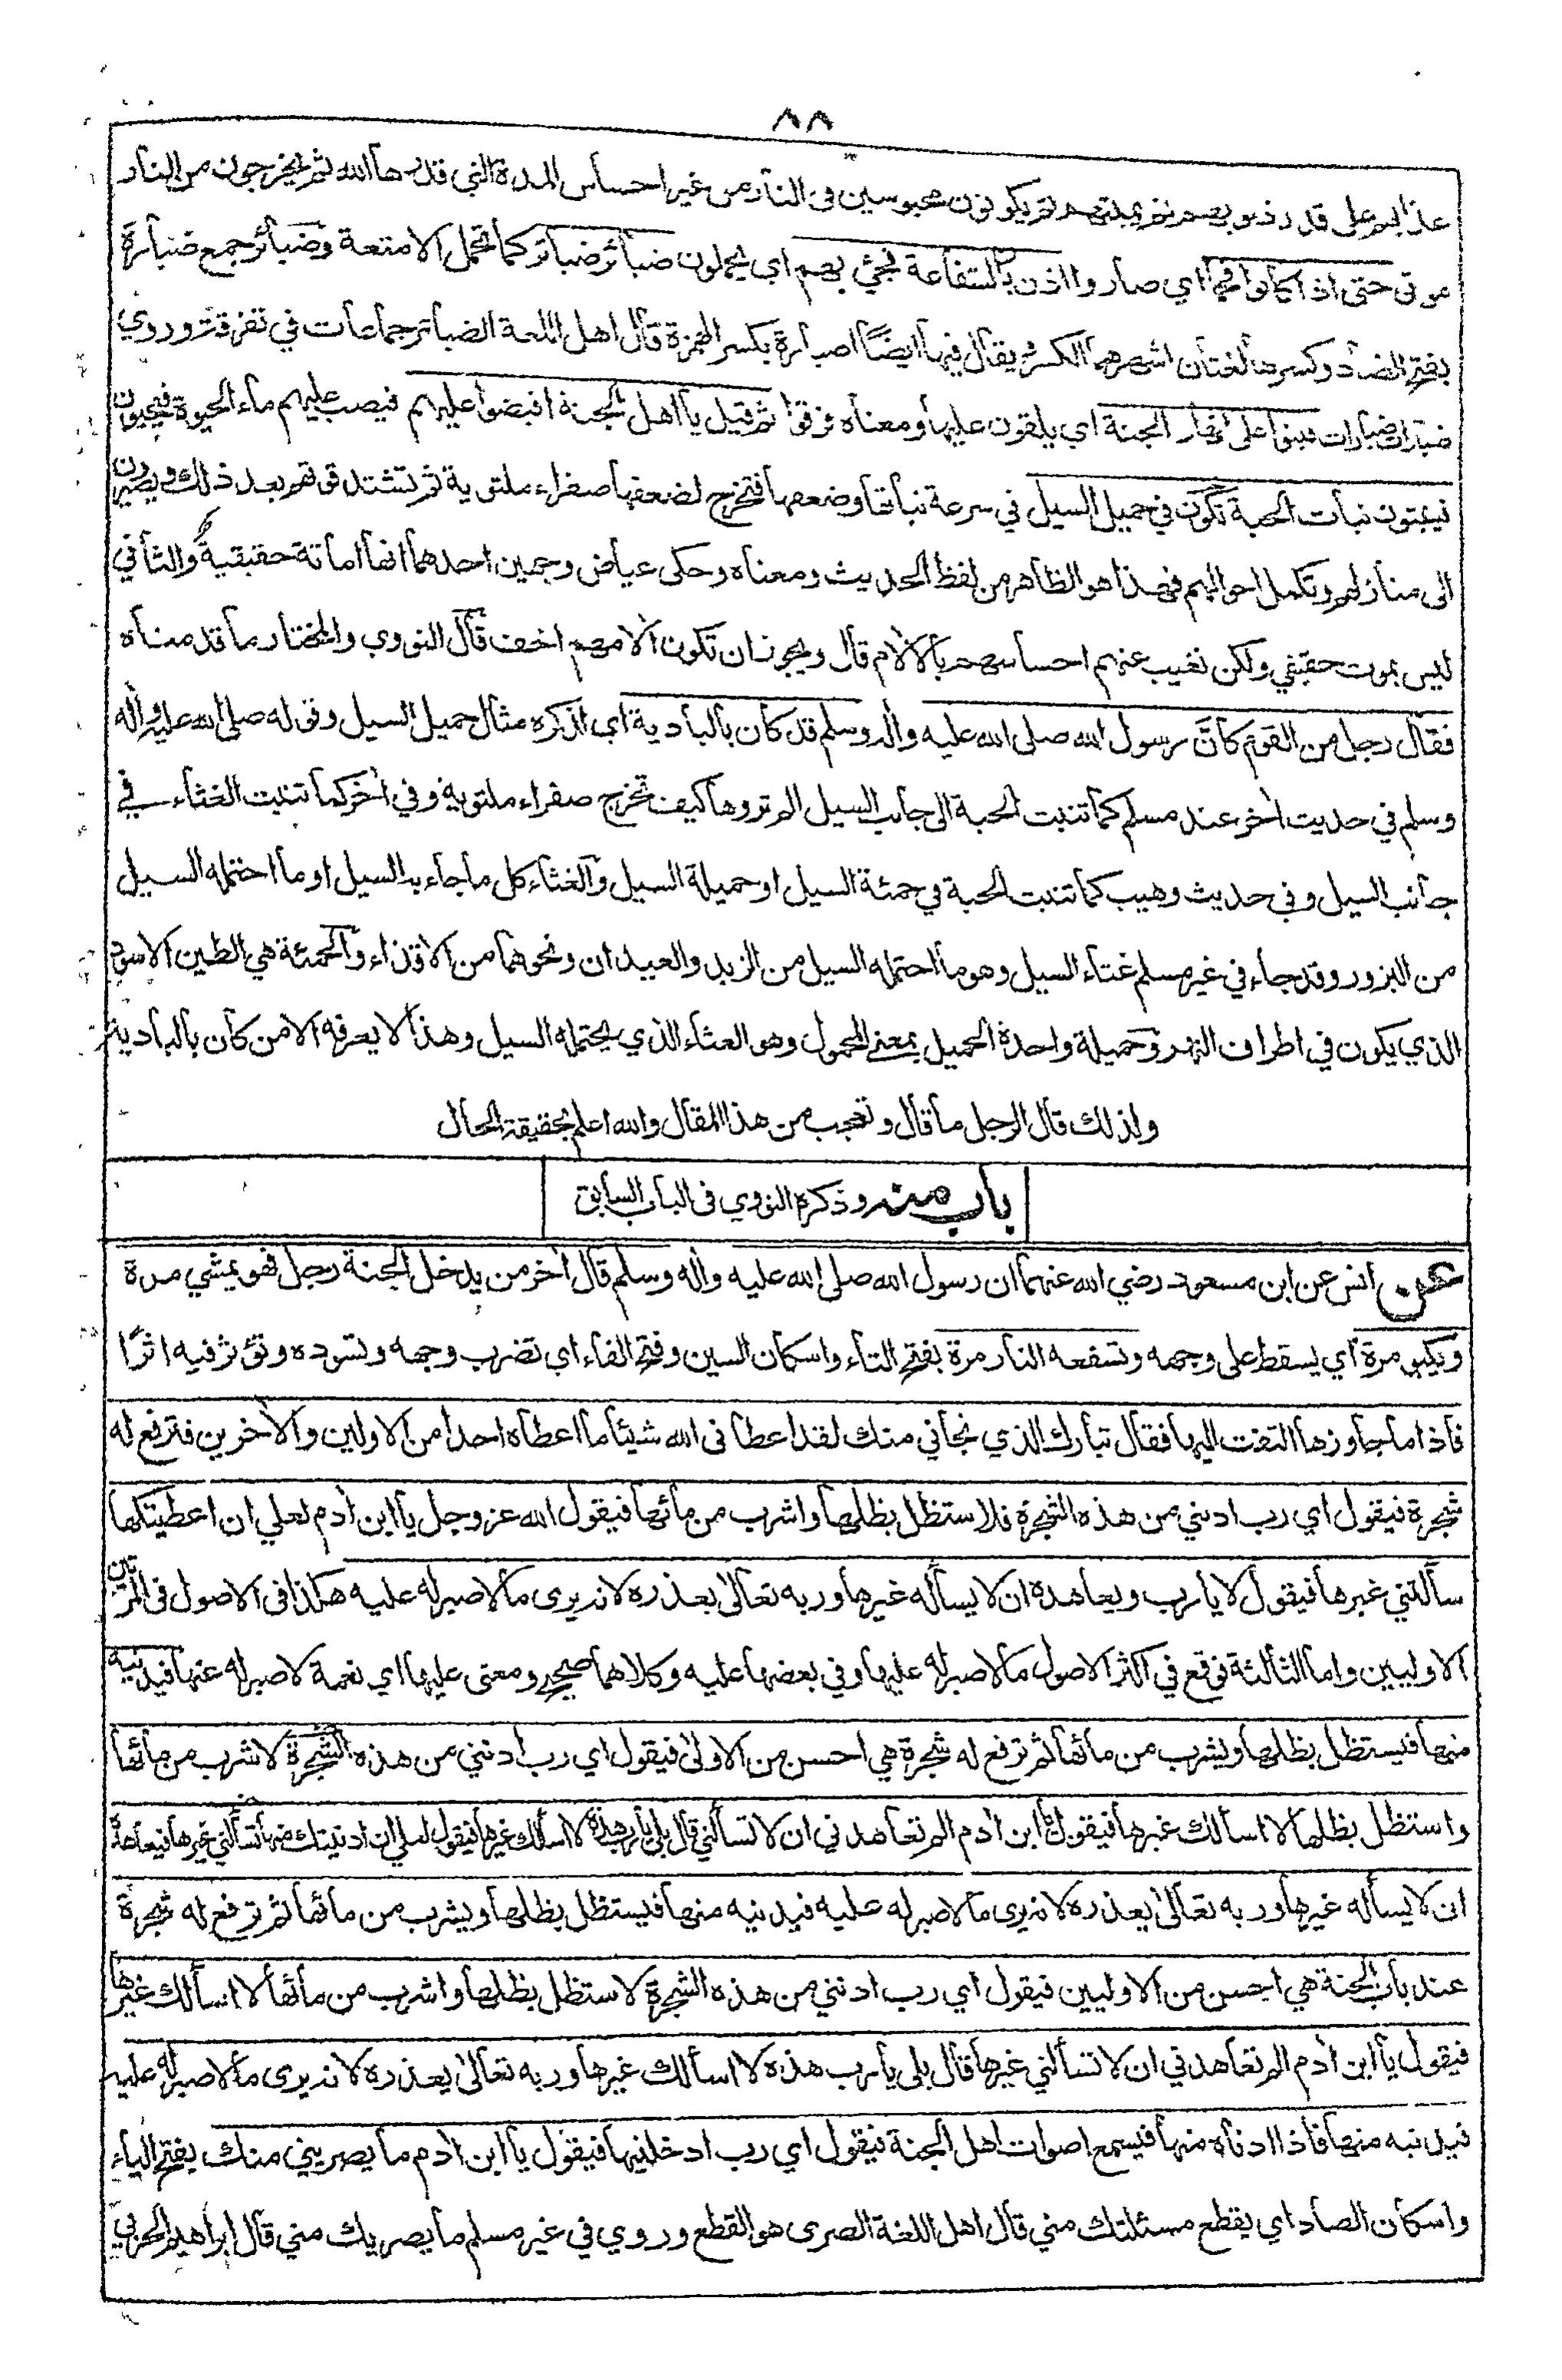 ٨٨
عذابهم على قدر ذنوبهم ثم يميتهم ثم يكونون محبوسين في النار من غير احساس المدة التي قدرها الله ثم يخرجون من النار
موتى حتى اذا كانوا فحما اي صاروا اذن بالشفاعة فجئ بهم اي يحملون ضبائر ضبائر كما تحمل الامتعة وضبائر جمع ضبارة
بفتح الضاد وكسرها لغتان اشهرهما الكسر ويقال فيها ايضًا اضبارة بكسر الهمزة قال اهل اللغة الضبائر جماعات في تفرقة وروي
ضبارات ضبارات فبثوا على انهار الجنة اي يلقون عليها ومعناه فرقوا ثم قيل يا اهل الجنة افيضوا عليهم فيصب عليهم ماء الحيوة فيحيون
فينبتون نبات الحبة تكون في حميل السيل في سرعة نباتها وضعفها فتخرج لضعفها صفراء ملتوية ثم تشتد قوتهم بعد ذلك ويصيرون
الى منازلهم وتكمل احوالهم فهذا هو الظاهر من لفظ الحديث ومعناه وحكى عياض وجهين احدهما انها اماتة حقيقية والثاني
ليس بموت حقيقي ولكن تغيب عنهم احساسهم بالآلام قال ويجوز ان تكون آلامهم اخف قال النووي والمختار ما قدمناه
فقال رجل من القوم كانَّ رسول الله صلى الله عليه وآله وسلم قد كان بالبادية اي لذكره مثال حميل السيل وقوله صلى الله عليه وآله
وسلم في حديث آخر عند مسلم كما تنبت الحبة الى جانب السيل الم تروها كيف تخرج صفراء ملتوية وفي آخر كما تنبت الغثاء في
جانب السيل وفي حديث وهيب كما تنبت الحبة في حمئة السيل او حميلة السيل والغثاء كل ما جاء به السيل او ما احتمله السيل
من البزور وقد جاء في غير مسلم غثاء السيل وهو ما احتمله السيل من الزبد والعيدان ونحوهما من الاقذاء والحمئة هي الطين الاسود
الذي يكون في اطراف النهر وحميلة واحدة الحميل بمعنى المحمول وهو الغثاء الذي يحتمله السيل وهذا لا يعرفه الا من كان بالبادية
ولذلك قال الرجل ما قال وتعجب من هذا المقال والله اعلم بحقيقة الحال
باب منه وذكره النووي في الباب السابق
عن انس عن ابن مسعود رضي الله عنهما ان رسول الله صلى الله عليه وآله وسلم قال آخر من يدخل الجنة رجل فهو يمشي مرة
ويكبو مرة اي يسقط على وجهه وتسفعه النار مرة بفتح التاء واسكان السين وفتح الفاء اي تضرب وجهه وتسوده وتؤثر فيه اثرًا
فاذا ما جاوزها التفت اليها فقال تبارك الذي نجاني منك لقد اعطاني الله شيئا ما اعطاه احدا من الاولين والآخرين فترفع له
شجرة فيقول اي رب ادنني من هذه الشجرة فلاستظل بظلها واشرب من مائها فيقول الله عز وجل يا ابن آدم لعلي ان اعطيتكها
سألتني غيرها فيقول لا يا رب ويعاهده ان لا يسأله غيرها وربه تعالى يعذره لانه يرى ما لا صبر له عليه هكذا في الاصول في المرتين
الاوليين واما الثالثة فوقع في اكثر الاصول ما لا صبر له عليها وفي بعضها عليه وكلاهما صحيح ومعنى عليها اي نعمة لا صبر له عنها فيدنيه
منها فيستظل بظلها ويشرب من مائها ثم ترفع له شجرة هي احسن من الاولى فيقول اي رب ادنني من هذه الشجرة لاشرب من مائها
واستظل بظلها لا اسألك غيرها فيقول يا ابن آدم الم تعاهدني ان لا تسألني قال بلى يا رب هذه لا اسألك غيرها فيقول لعلي ان ادنيتك منها تسألني غيرها فيعاهده
ان لا يسأله غيرها وربه تعالى يعذره لانه يرى ما لا صبر له عليه فيدنيه منها فيستظل بظلها ويشرب من مائها ثم ترفع له شجرة
عند باب الجنة هي احسن من الاوليين فيقول اي رب ادنني من هذه الشجرة لاستظل بظلها واشرب من مائها لا اسألك غيرها
فيقول يا ابن آدم الم تعاهدني ان لا تسألني غيرها قال بلى يا رب هذه لا اسألك غيرها وربه تعالى يعذره لانه يرى ما لا صبر له عليه
فيدنيه منها فاذا ادناه منها فيسمع اصوات اهل الجنة فيقول اي رب ادخلنيها فيقول يا ابن آدم ما يصريني منك بفتح الياء
واسكان الصاد اي يقطع مسئلتك مني قال اهل اللغة الصرى هو القطع وروي في غير مسلم ما يصريك مني قال ابراهيم الحربي